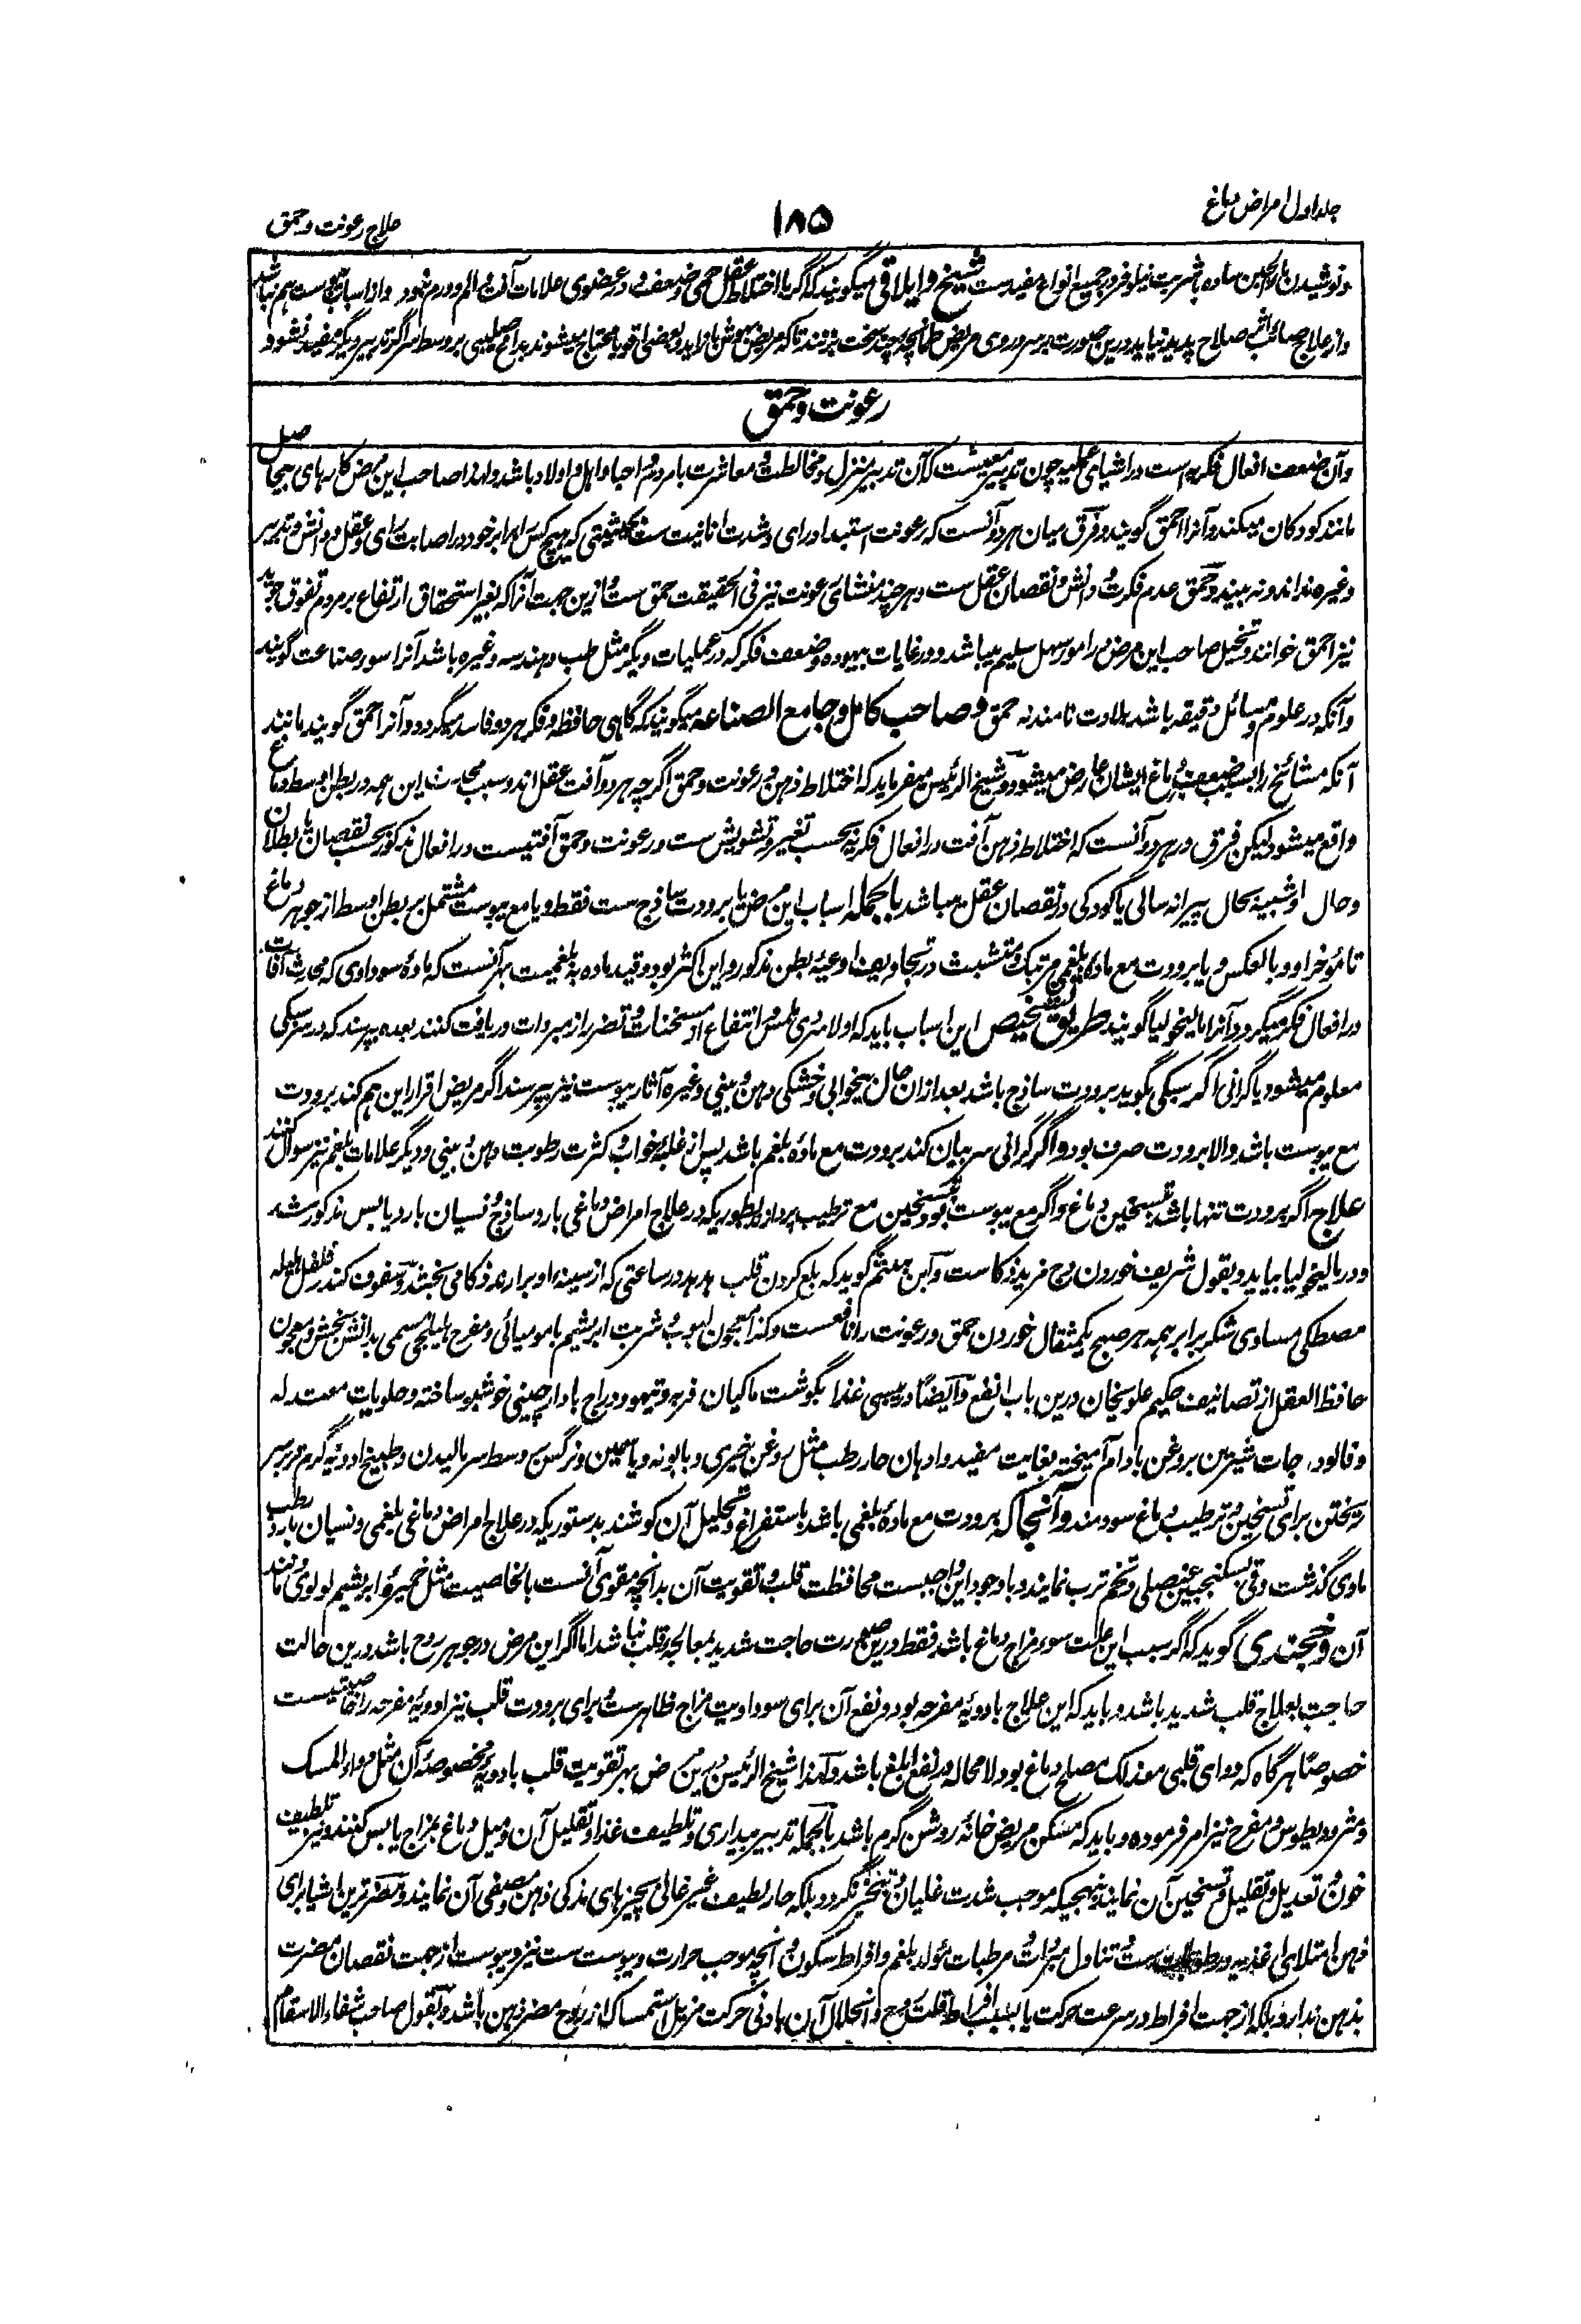 جلد اول امراض دماغ
۱۸۵
علاج رعونت و حمق
و نوشیدن ساده با شربت نیلوفر در جمیع انواع مفیدست شیخ و ایلاقی میگویند که اگر با اختلاط عقل حمی و ضعف در عضوی علامات آفت و الم و ورم نبود
و از علاج صلاح پدید نیاید درین صورت بر سر و روی مریض طمانچه چند سخت بزنند تا که مریض بهوش باز آید و بعضی اقویا محتاج میشوند بداغ صلیبی بر وسط سر اگر تدبیر دیگر مفید نشود
رعونت و حمق
و آن ضعف افعال فکریه است در اشیای عملیه چون تدبیر معیشت که آن تدبیر منزل و مخالطت و معاشرت با مردم و احبا و اهل و اولاد باشد و لهذا صاحب این مرض کارهای بیجا
مانند کودکان میکند و آنرا احمق گویند و فرق میان هر دو آنست که رعونت استبداد رای و شدت انانیت ست بحیثیتی که هیچ کس را برابر خود در اصابت رای و عقل و دانش و تدبیر
و غیره نداند و نه بیند و حمق عدم فکرت و دانش و نقصان عقل ست و هر چند منشای رعونت نیز فی الحقیقت حمق ست ازین جهت آنرا که بغیر استحقاق ارتفاع بر مردم تفوق جوید
نیز احمق خوانند و تخیل صاحب این مرض در امور سهل سلیم میباشد و در غایات بیهوده و ضعف فکر که در عملیات دیگر مثل طب و هندسه و غیره باشد آنرا سوء صناعت گویند
و آنکه در علوم و مسائل دقیقه باشد بلادت نامند نه حمق و صاحب کامل و جامع الصناعه میگویند که گاهی حافظه و فکر هر دو فاسد میگردد و آنرا حمق گویند مانند
آنکه مشائخ را بسبب ضعف دماغ ایشان عارض میشود و شیخ الرئیس میفرماید که اختلاط ذهن و رعونت و حمق اگر چه هر دو آفت عقل اند و سبب این همه در بطن اوسط دماغ
واقع میشود لیکن فرق در هر دو آنست که اختلاط ذهن آفت در افعال فکریه بحسب تغیر و تشویش ست و رعونت و حمق آفتیست در افعال مذکور بحسب نقصان یا بطلان
و حال او شبیه بحال پیرانه سالی یا کودکی در نقصان عقل میباشد بالجمله اسباب این مرض یا برودت ساذج ست فقط و یا مع یبوست مشتمل بر بطن اوسط از جوهر دماغ
تا مؤخر او و بالعکس و یا برودت مع ماده بلغمی مرتبک و متشبث در تجاویف اوعیه بطن مذکور و این اکثر بود و قید ماده به بلغمیت بهر آنست که ماده سوداوی که محدث آفات
در افعال فکر میگردد آنرا مالیخولیا گویند طریق تشخیص این اسباب باید که اولا سردی ملمس و انتفاع از مسخنات و تضرر از مبردات دریافت کنند بعده بپرسند که در سر سبکی
معلوم میشود یا گرانی اگر سبکی بگوید برودت ساذج باشد بعد ازان حال بیخوابی و خشکی دهن و بینی و غیره آثار یبوست نیز بپرسند اگر مریض اقرار این هم کند برودت
مع یبوست باشد والا برودت صرف بود و اگر گرانی سر بیان کند برودت مع ماده بلغم باشد پس از غلبه خواب و کثرت رطوبت دهن و بینی و دیگر علامات بلغم نیز سوال کنند
علاج اگر برودت تنها باشد بتسخین دماغ و اگر مع یبوست بود بتسخین مع ترطیب پردازند بطوریکه در علاج امراض دماغی بارد ساذج و نسیان بارد یابس مذکور شد
و در مالیخولیا بیاید و بقول شریف خوردن وج مزید ذکاست و ابن هیثم گوید که بلع کردن قلب هدهد در ساعتی که از سینه او برارند ذکا می بخشد و سفوف کندر فلفل هلیله
مصطکی مساوی شکر برابر همه هر صبح یکمثقال خوردن حمق و رعونت را نافعست و کذا معجون لبوب و شربت ابریشم با مومیائی و مفرح هلیلجی مسمی بدانش بخش و معجون
حافظ العقل از تصانیف حکیم علویخان درین باب انفع و ایضا غذا بگوشت ماکیان فربه و تیهو و دراج با دارچینی خوشبو ساخته و حلویات معتدله
و فالوده جات شیرین بروغن بادام آمیخته بغایت مفید و ادهان حار رطب مثل روغن خیری و بابونه و یاسمین و نرگس بر وسط سر مالیدن و طبیخ ادویه گرم تر بر سر
ریختن برای تسخین و ترطیب دماغ سودمند و آنجا که برودت مع ماده بلغمی باشد باستفراغ و تحلیل آن کوشند بدستوریکه در علاج امراض دماغی بلغمی و نسیان بارد رطب
مادی گذشت و قی بسکنجبین عنصلی و تخم ترب نمایند و باوجود این واجبست محافظت قلب و تقویت آن بدانچه مقوی آنست بالخاصیت مثل خمیره ابریشم لولوی و مانند
آن و خجندی گوید که اگر سبب این حالت سوء مزاج دماغ باشد فقط درین صورت حاجت شدید بمعالجه قلب نباشد اما اگر این مرض در جوهر روح باشد درین حالت
حاجت بعلاج قلب شدید باشد و باید که این علاج بادویه مفرحه بود و نفع آن برای سوداویت مزاج ظاهرست و برای برودت قلب نیز ادویه مفرحه را خاصیتیست
خصوصا هرگاه که دوای قلبی معذلک مصلح دماغ بود لا محاله در نفع ابلغ باشد و لهذا شیخ الرئیس درین مرض بهر تقویت قلب بادویه مخصوصه آن مثل دواء المسک
و مثرودیطوس و مفرح نیز امر فرموده و باید که مسکن مریض خانه روشن گرم باشد بالجمله تدبیر بیداری و تلطیف غذا و تقلیل آن و میل دماغ بمزاج یابس کنند و نیز تلطیف
خون و تعدیل و تقلیل و تسخین آن نمایند بنهجیکه موجب شدت غلیان و تبخیر نگردد بلکه حار لطیف غیر غالی بچیزهای مذکی ذهن و مصفی آن نمایند و مضرترین اشیا برای
ذهن امتلای اغذیه و ست و تناول مرطبات مولد بلغم و افراط سکون و آنچه موجب حرارت و یبوست ست نیز و یبوست از جهت نقصان مضرت
بذهن ندارد بلکه از جهت افراط در سرعت حرکت یا بسبب افراط قلت روح و انحلال آن بادنی حرکت مزیل استمساک از روح مضر ذهن باشد و بقول صاحب شفاء الاسقام